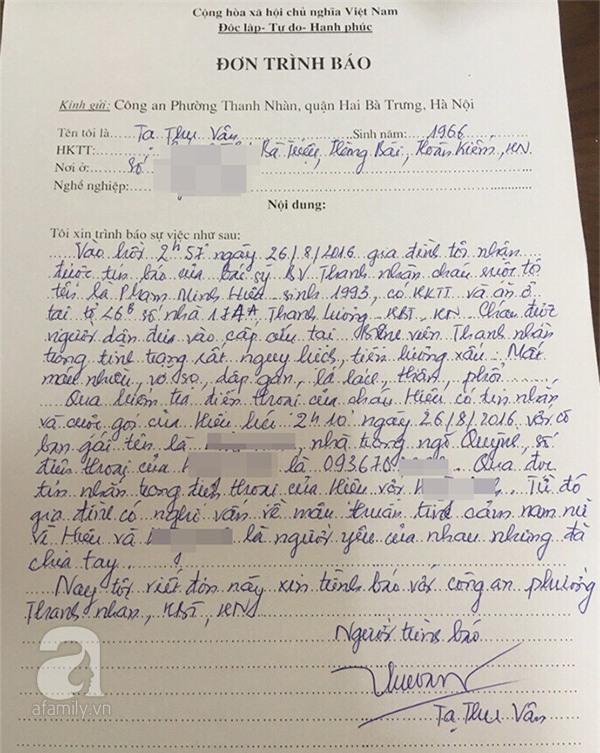 Cộng hòa xã hội chủ nghĩa Việt Nam
Độc lập- Tự do- Hanh phúc
ĐƠN TRÌNH BÁO
Kính gửi: Công an Phường Thanh Nhàn, quận Hai Bà Trưng, Hà Nội
Tên tôi là Tạ Thu Vân Sinh năm: 1966
HKTT: Bà Triệu, Hàng Bài, Hoàn Kiếm, HN
Nơi ở: Số
Nghề nghiệp:
Nội dung:
Tôi xin trình báo sự việc như sau:
Vào hồi 2h57' ngày 26/8/2016 gia đình tôi nhận
được tin báo của bác sỹ BV Thanh nhàn cháu ruột tôi
tên là Phạm Minh Hiếu sinh 1993, có HKTT và ăn ở
tại tổ 26B số nhà 17A4, Thanh Lương HBT, HN Cháu được
người dân đưa vào cấp cứu tại Bệnh viện Thanh nhàn
trong tình trạng rất nguy kịch, tiên lượng xấu. Mất
máu nhiều, vỡ sọ, dập gan, lá lách, thận, phổi
Qua kiểm tra điện thoại của cháu Hiếu có tin nhắn
và cuộc gọi của Hiếu lúc 2h10' ngày 26/8/2016 với cô
bạn gái tên là nhà trong ngõ Quỳnh, số
điện thoại của H là 093670 Qua đọc
tin nhắn trong điện thoại của Hiếu với H Từ đó
gia đình có nghi vấn về mâu thuẫn tình cảm nam nữ
vì Hiếu và là người yêu của nhau nhưng đã
chia tay.
Nay tôi viết đơn này xin trình báo với công an phường
Thanh nhàn, HBT, HN
Người trình báo
Tạ Thu Vân
a
afamily.vn